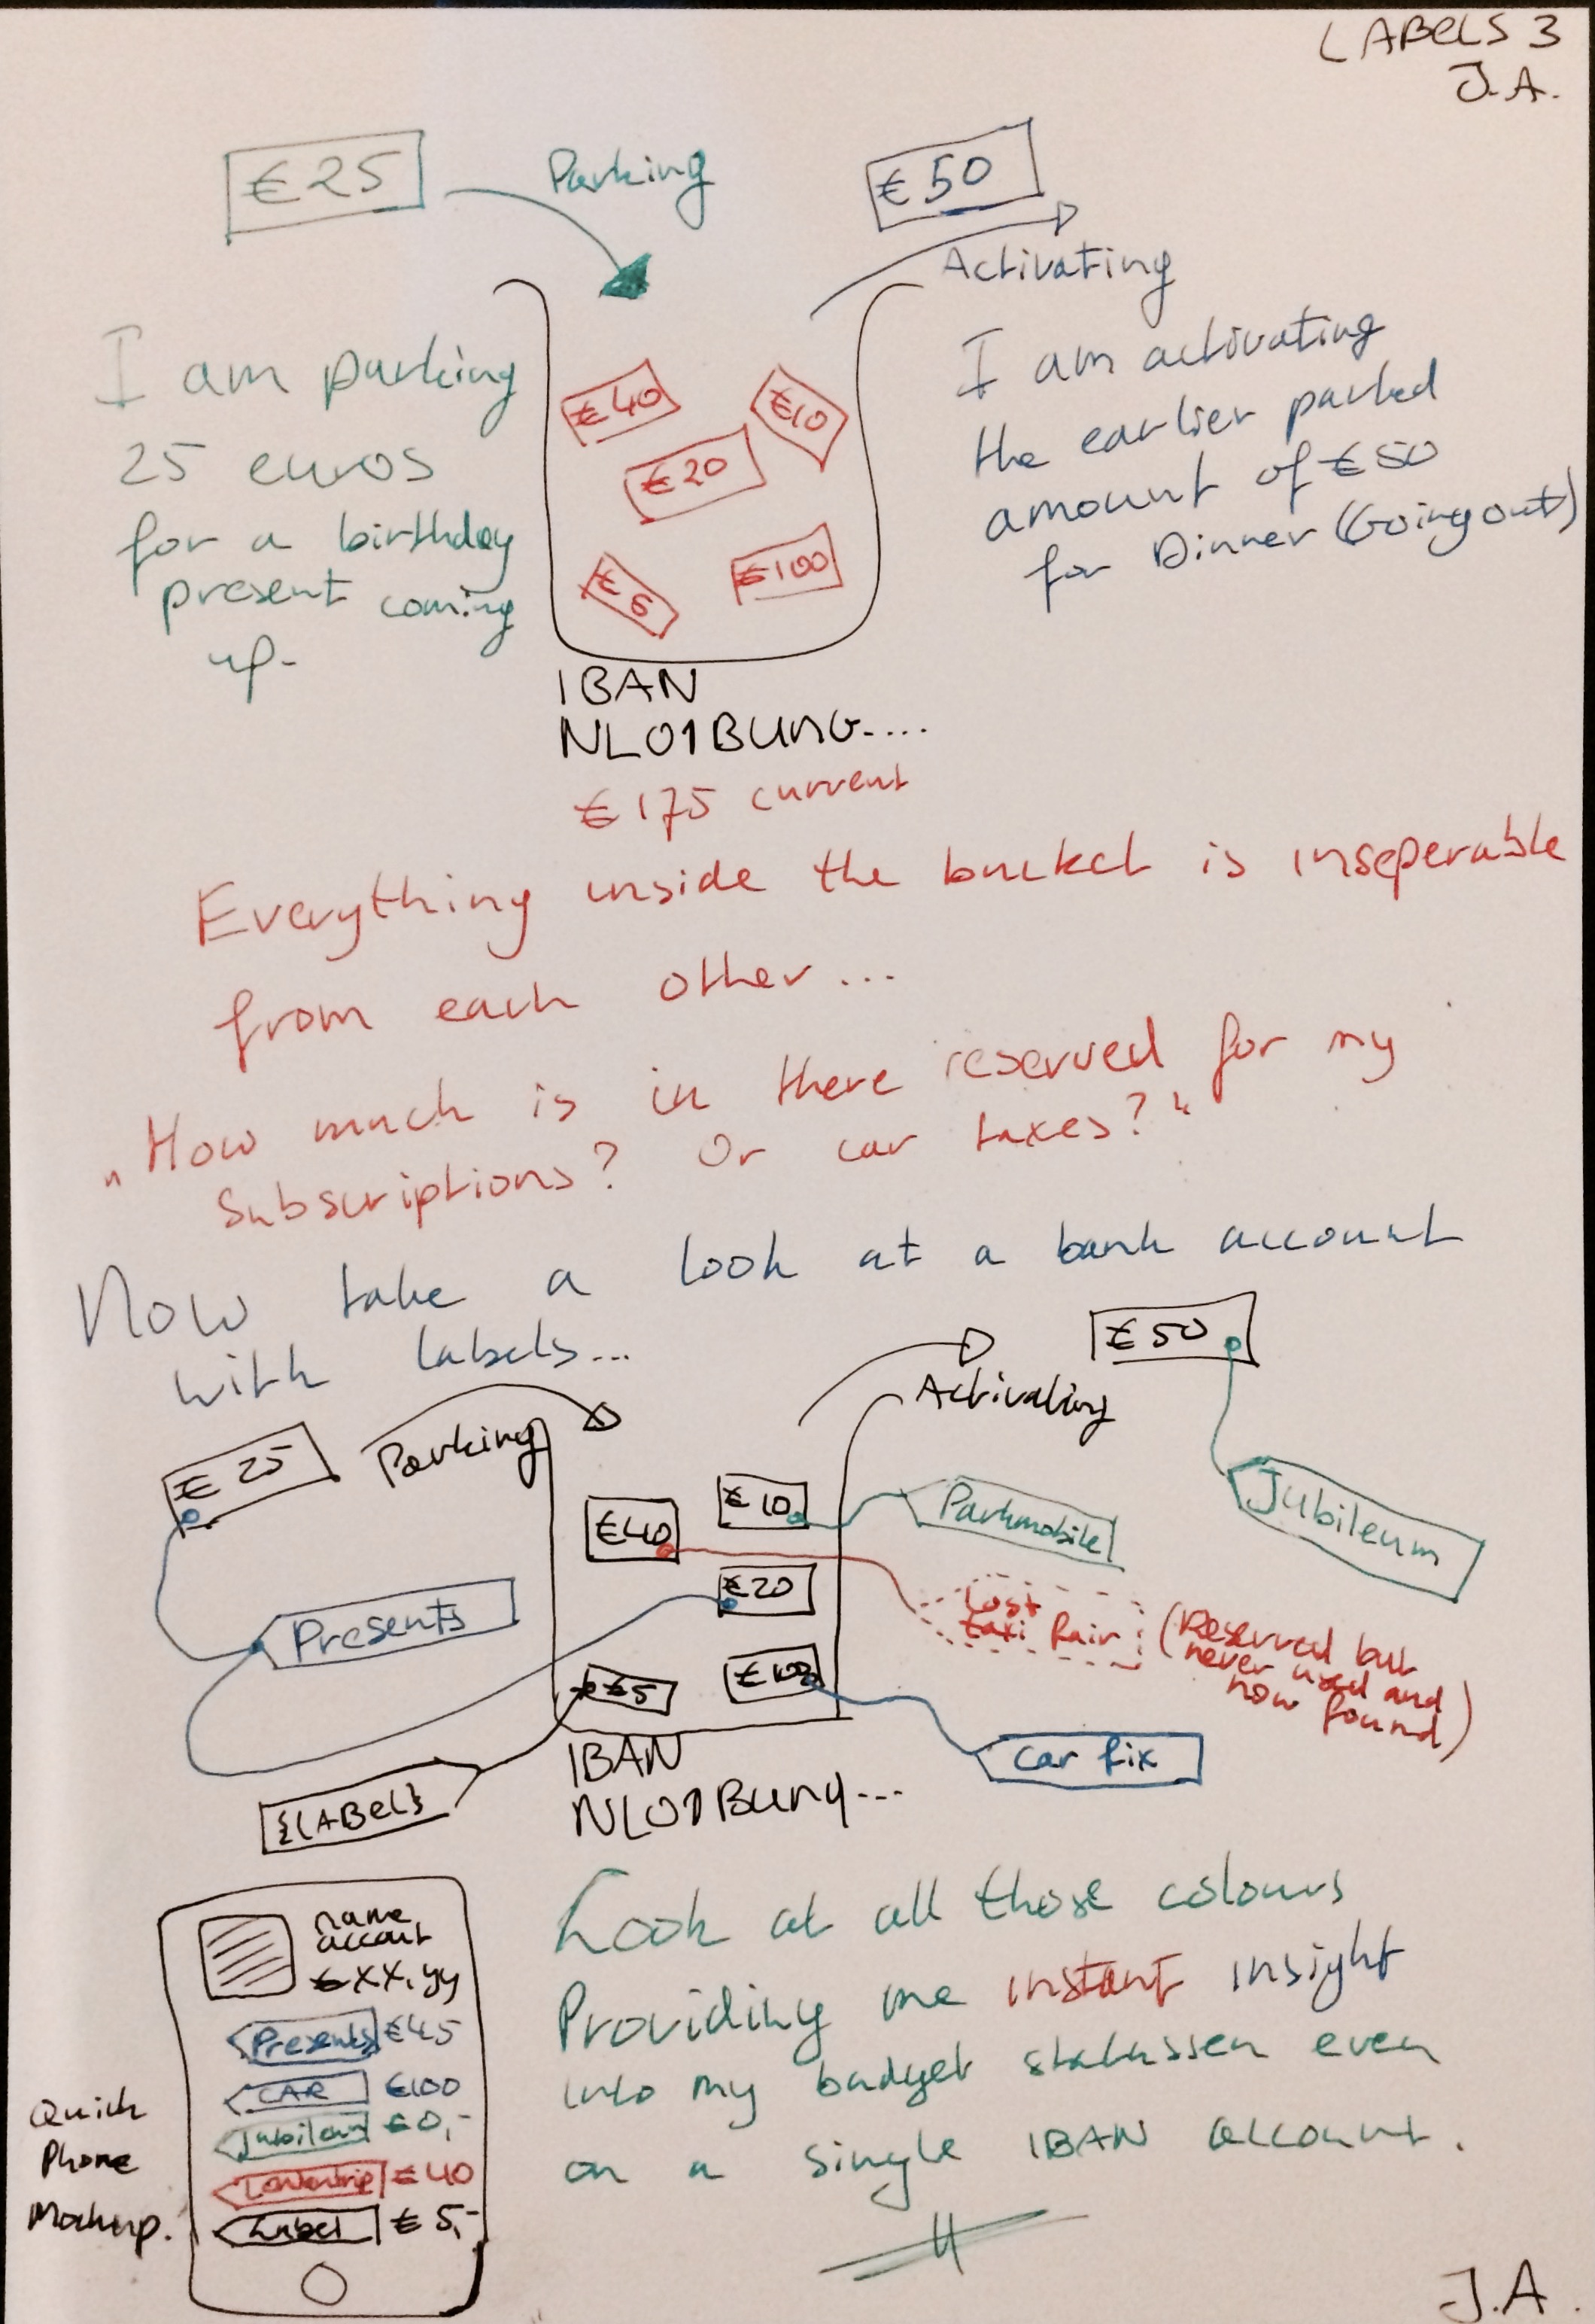 LABELS 3
J.A.
€25
Parking
€50
Activating
I am parking
25 euros
for a birthday
present coming
up.
€40
€10
€20
€100
I am activating
the earlier parked
amount of €50
for Dinner (Going out)
IBAN
NL01BUNG....
€175 current
Everything inside the bucket is inseperable
from each other...
"How much is in there reserved for my
Subscriptions? Or car taxes?"
Now take a look at a bank account
with labels...
€25
Parking
Activating
€50
Jubileum
€40
€10
Parkmobile
€20
Lost
taxi
(Reserved but
never used and
now found)
Presents
€5
€100
car fix
{LABEL}
IBAN
NL01Bunq...
name
account
€xx,yy
Presents €45
CAR €100
Jubileum €0,-
€40
Label €5,-
Quick
Phone
Mockup.
Look at all those colours
Providing me instant insight
into my budget statussen even
on a single IBAN account.
J.A.